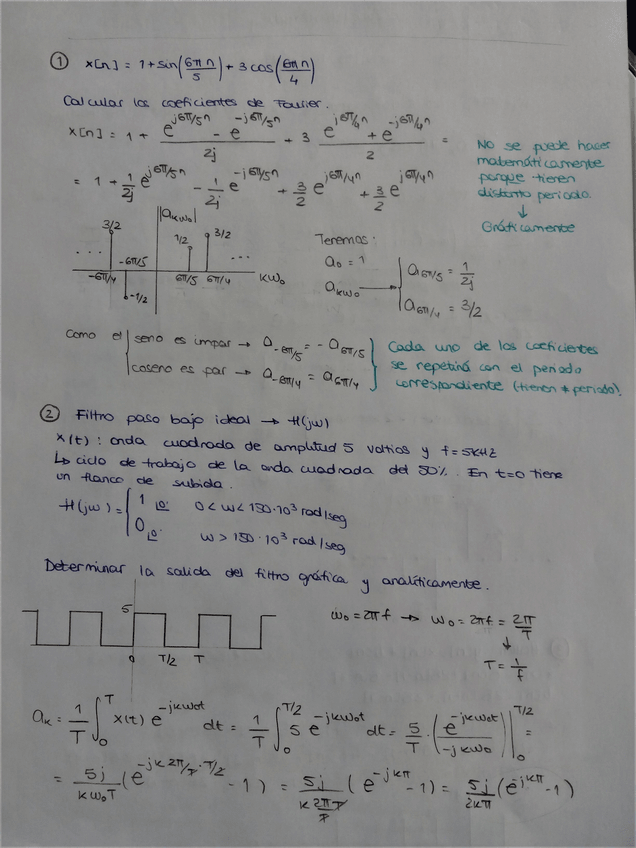 ① x[n] = 1 + sin(6πn/5) + 3 cos(6πn/4)
Calcular los coeficientes de Fourier.
x[n] = 1 + (e^{j6π/5 n} - e^{-j6π/5 n})/2j + 3 (e^{j6π/4 n} + e^{-j6π/4 n})/2 =
= 1 + 1/2j e^{j6π/5 n} - 1/2j e^{-j6π/5 n} + 3/2 e^{j6π/4 n} + 3/2 e^{j6π/4 n}
No se puede hacer
matemáticamente
porque tienen
distinto periodo.
↓
Gráficamente
|a_{kω₀}|
3/2
1/2
3/2
... ...
-6π/4 -6π/5 6π/5 6π/4 kω₀
-1/2
Teremos:
a₀ = 1
a_{kω₀} → a_{6π/5} = 1/2j
a_{6π/4} = 3/2
Como el seno es impar → a_{-6π/5} = -a_{6π/5}
coseno es par → a_{-6π/4} = a_{6π/4}
Cada uno de los coeficientes
se repetirá con el periodo
correspondiente (tienen ≠ periodo).
② Filtro paso bajo ideal → H(jω)
x(t): onda cuadrada de amplitud 5 voltios y f=5kHz
↳ ciclo de trabajo de la onda cuadrada del 50%. En t=0 tiene
un flanco de subida.
H(jω) = { 1 |0° 0 < ω < 150·10³ rad/seg
0 |0° ω > 150·10³ rad/seg
Determinar la salida del filtro gráfica y analíticamente.
5
0 T/2 T
ω₀ = 2πf → ω₀ = 2πf = 2π/T
↓
T = 1/f
a_k = 1/T ∫₀^T x(t) e^{-jkω₀t} dt = 1/T ∫₀^{T/2} 5 e^{-jkω₀t} dt = 5/T · (e^{-jkω₀t}/-jkω₀)|₀^{T/2} =
= 5j/kω₀T (e^{-jk 2π/T · T/2} - 1) = 5j/(k 2π/T T) (e^{-jkπ} - 1) = 5j/2kπ (e^{-jkπ} - 1)